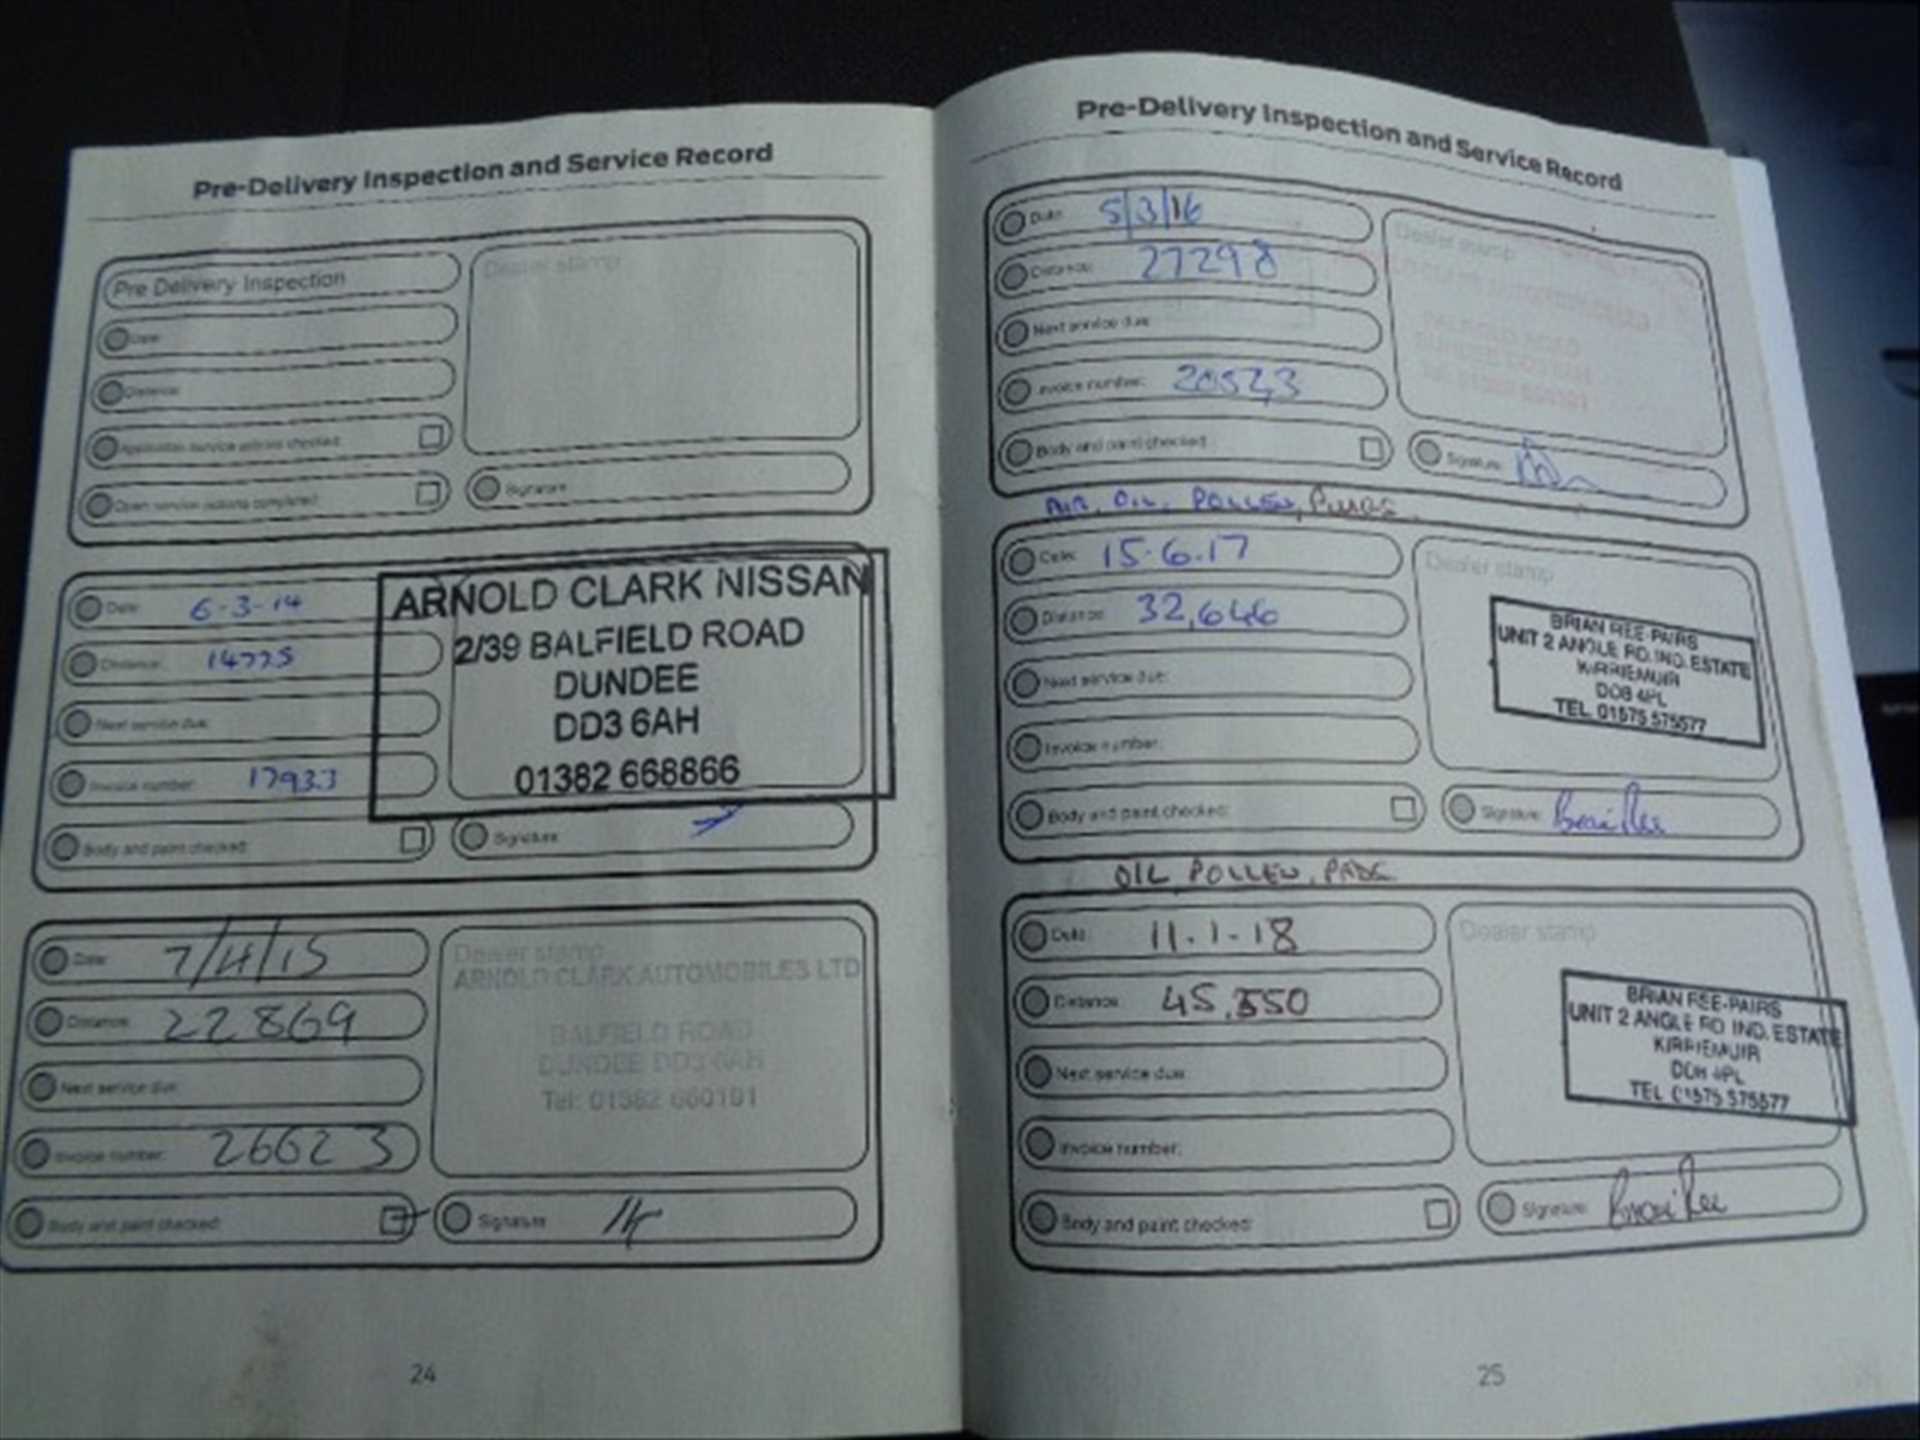 Pre-Delivery Inspection and Service Record
Pre Delivery Inspection
Dealer stamp
Date:
Distance:
Application service actions checked:
Open service actions completed:
Signature:
Date: 6-3-14
Distance: 14775
Next service due:
Invoice number: 17933
Body and paint checked:
ARNOLD CLARK NISSAN
2/39 BALFIELD ROAD
DUNDEE
DD3 6AH
01382 668866
Signature:
Date: 7/4/15
Distance: 22869
Next service due:
Invoice number: 26623
Body and paint checked:
Dealer stamp
ARNOLD CLARK AUTOMOBILES LTD
BALFIELD ROAD
DUNDEE DD3 6AH
Tel: 01382 660101
Signature:
24
Pre-Delivery Inspection and Service Record
Date: 5/3/16
Distance: 27298
Next service due:
Invoice number: 20523
Body and paint checked:
Dealer stamp
Signature:
AIR, OIL, POLLEN, PLUGS
Date: 15.6.17
Distance: 32,646
Next service due:
Invoice number:
Body and paint checked:
Dealer stamp
BRIAN REE-PAIRS
UNIT 2 ANGLE RD. IND. ESTATE
KIRRIEMUIR
DD8 4PL
TEL. 01575 575577
Signature: Brian Ree
OIL, POLLEN, PADS
Date: 11.1-18
Distance: 45,550
Next service due:
Invoice number:
Body and paint checked:
Dealer stamp
BRIAN REE-PAIRS
UNIT 2 ANGLE RD IND. ESTATE
KIRRIEMUIR
DD8 4PL
TEL 01575 575577
Signature: Brian Ree
25